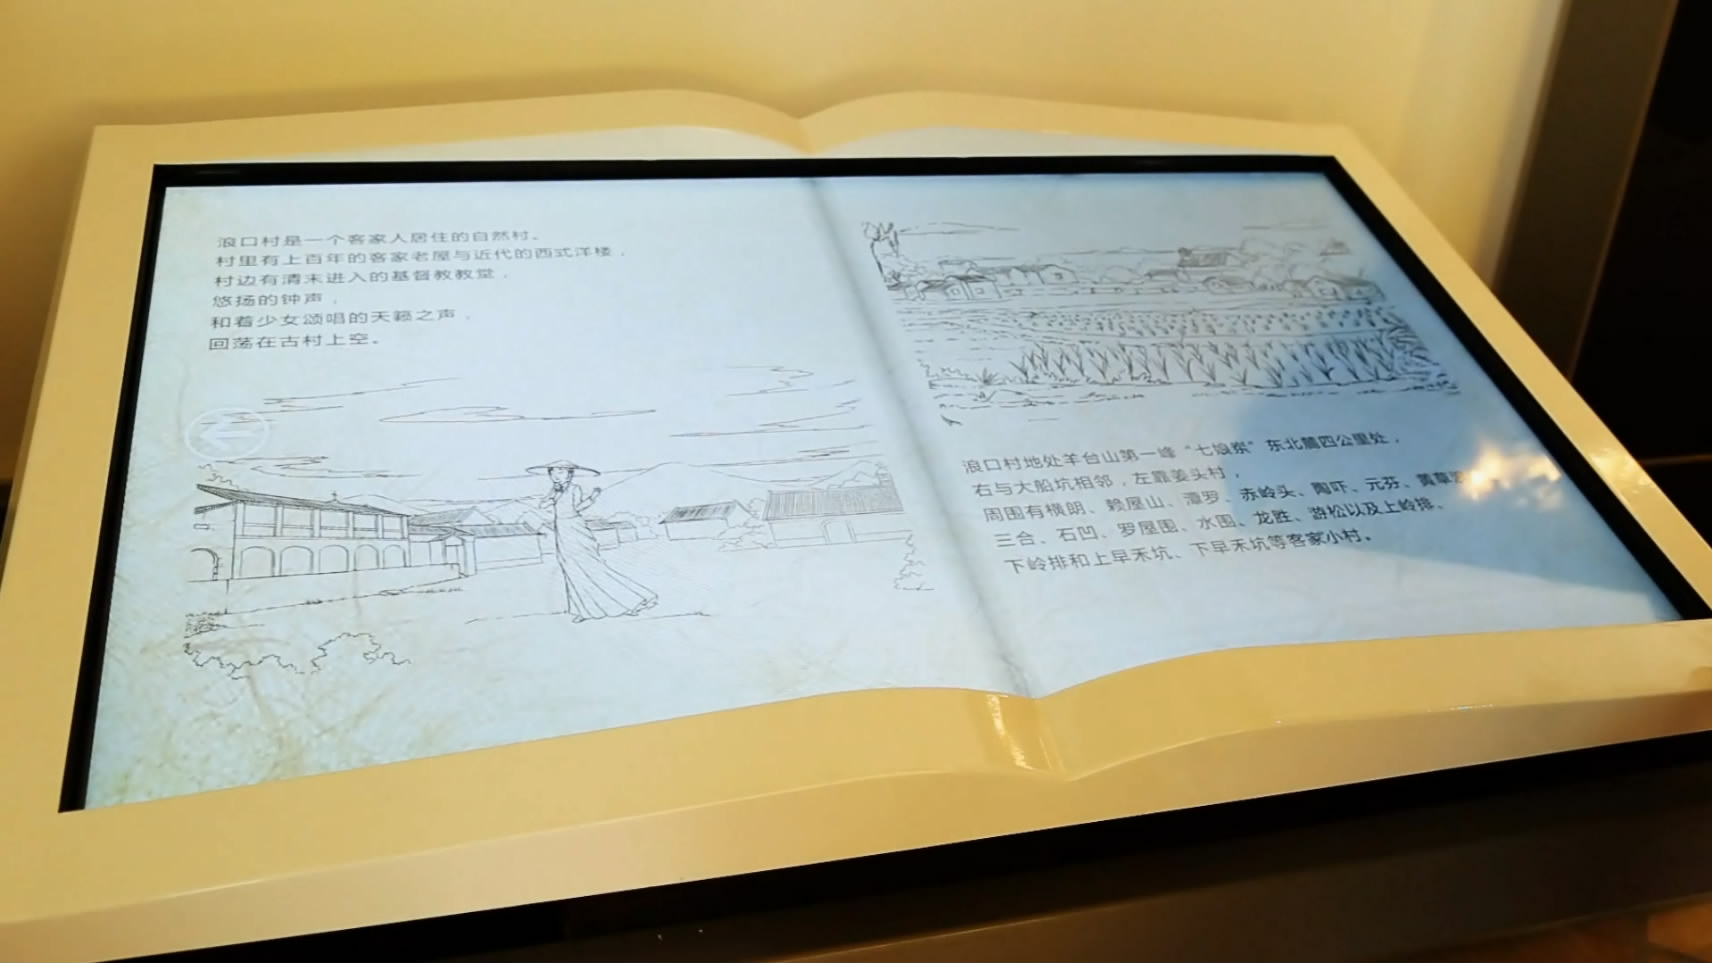 浪口村是一个客家人居住的自然村。
村里有上百年的客家老屋与近代的西式洋楼，
村边有清末进入的基督教教堂，
悠扬的钟声，
和着少女颂唱的天籁之声，
回荡在古村上空。
浪口村地处羊台山第一峰“七娘祭”东北麓四公里处，
右与大船坑相邻，左靠姜头村，
周围有横朗、赖屋山、潭罗、赤岭头、陶吓、元芬、黄草
三合、石凹、罗屋围、水围、龙胜、游松以及上岭排、
下岭排和上早禾坑、下早禾坑等客家小村。